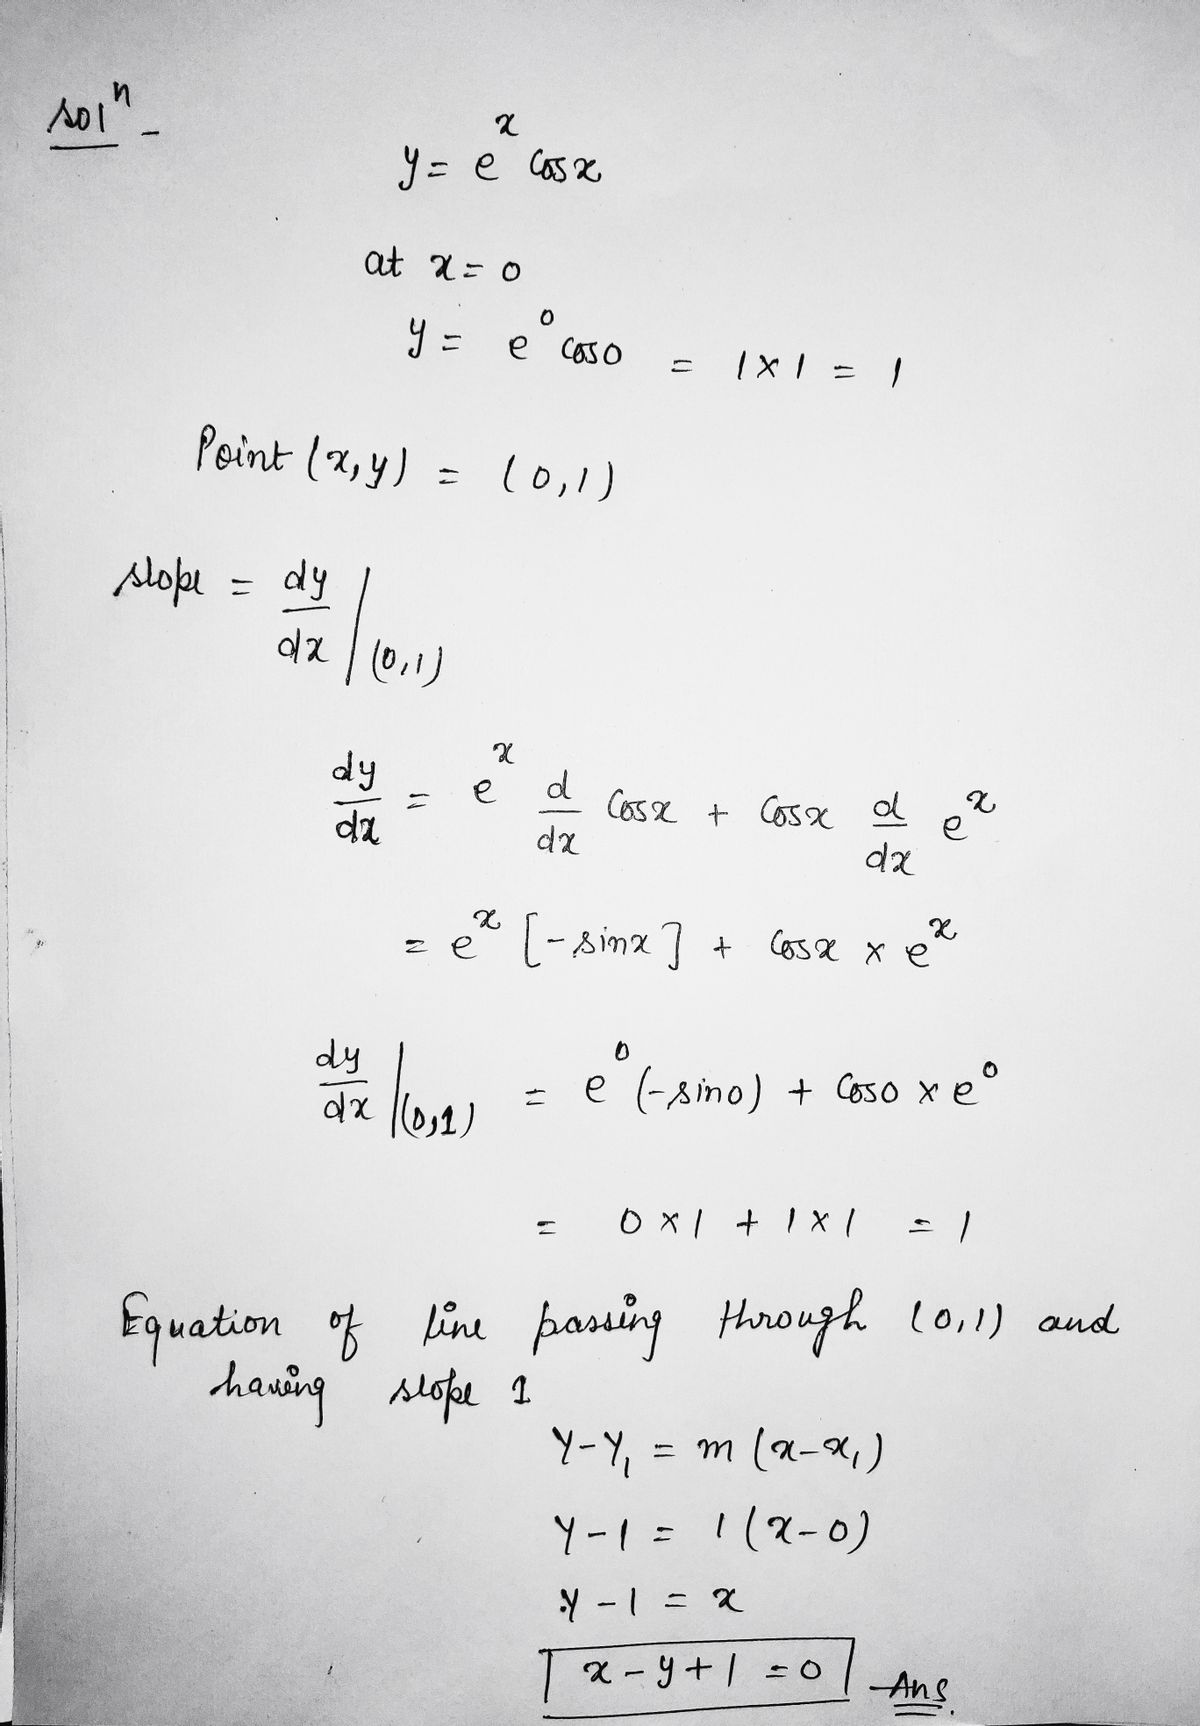 solⁿ -
y = eˣ cosx
at x = 0
y = e⁰ cos0 = 1 × 1 = 1
Point (x, y) = (0, 1)
slope = dy/dx |(0, 1)
dy/dx = eˣ d/dx cosx + cosx d/dx eˣ
= eˣ [-sinx] + cosx × eˣ
dy/dx |(0, 1) = e⁰ (-sin0) + cos0 × e⁰
= 0 × 1 + 1 × 1 = 1
Equation of line passing through (0, 1) and
having slope 1
Y - Y₁ = m (x - x₁)
Y - 1 = 1 (x - 0)
Y - 1 = x
x - y + 1 = 0 Ans.